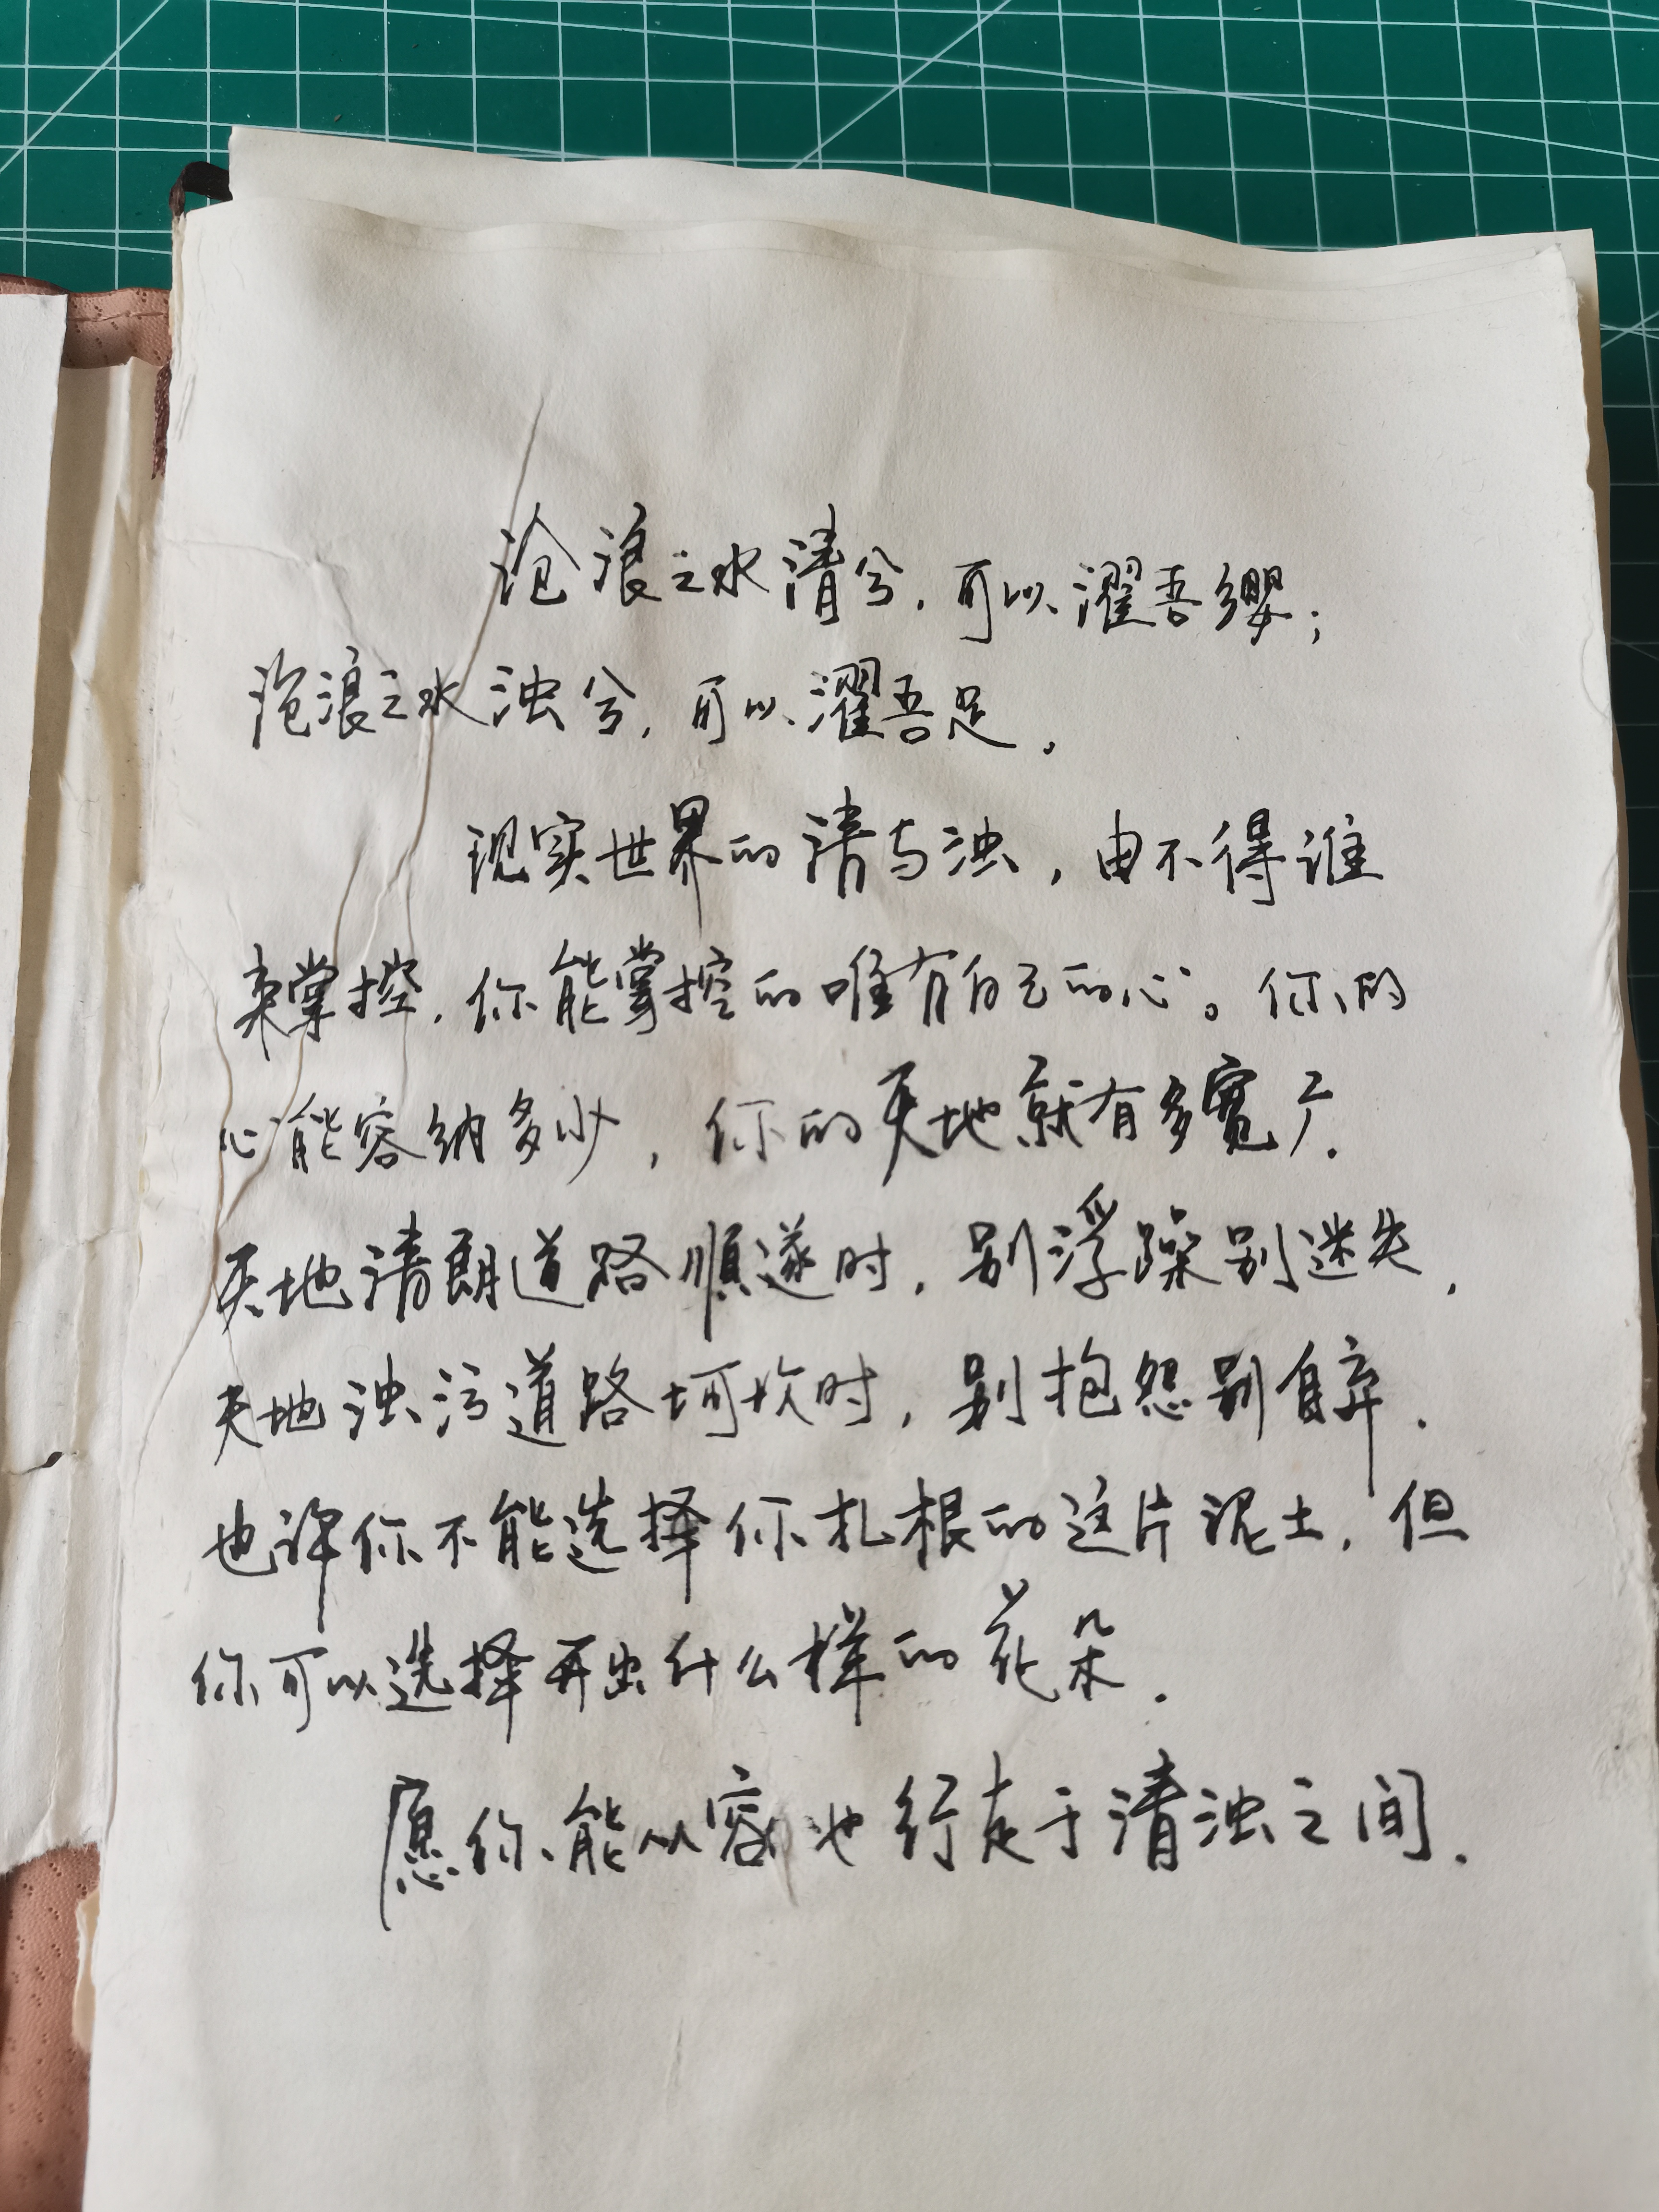 沧浪之水清兮,可以濯吾缨;
沧浪之水浊兮,可以濯吾足。
现实世界的清与浊,由不得谁
来掌控,你能掌控的唯有自己的心。你的
心能容纳多少,你的天地就有多宽广.
天地清朗道路顺遂时,别浮躁别迷失,
天地浊污道路坷坎时,别抱怨别自弃.
也许你不能选择你扎根的这片泥土,但
你可以选择开出什么样的花朵.
愿你能从容地行走于清浊之间.